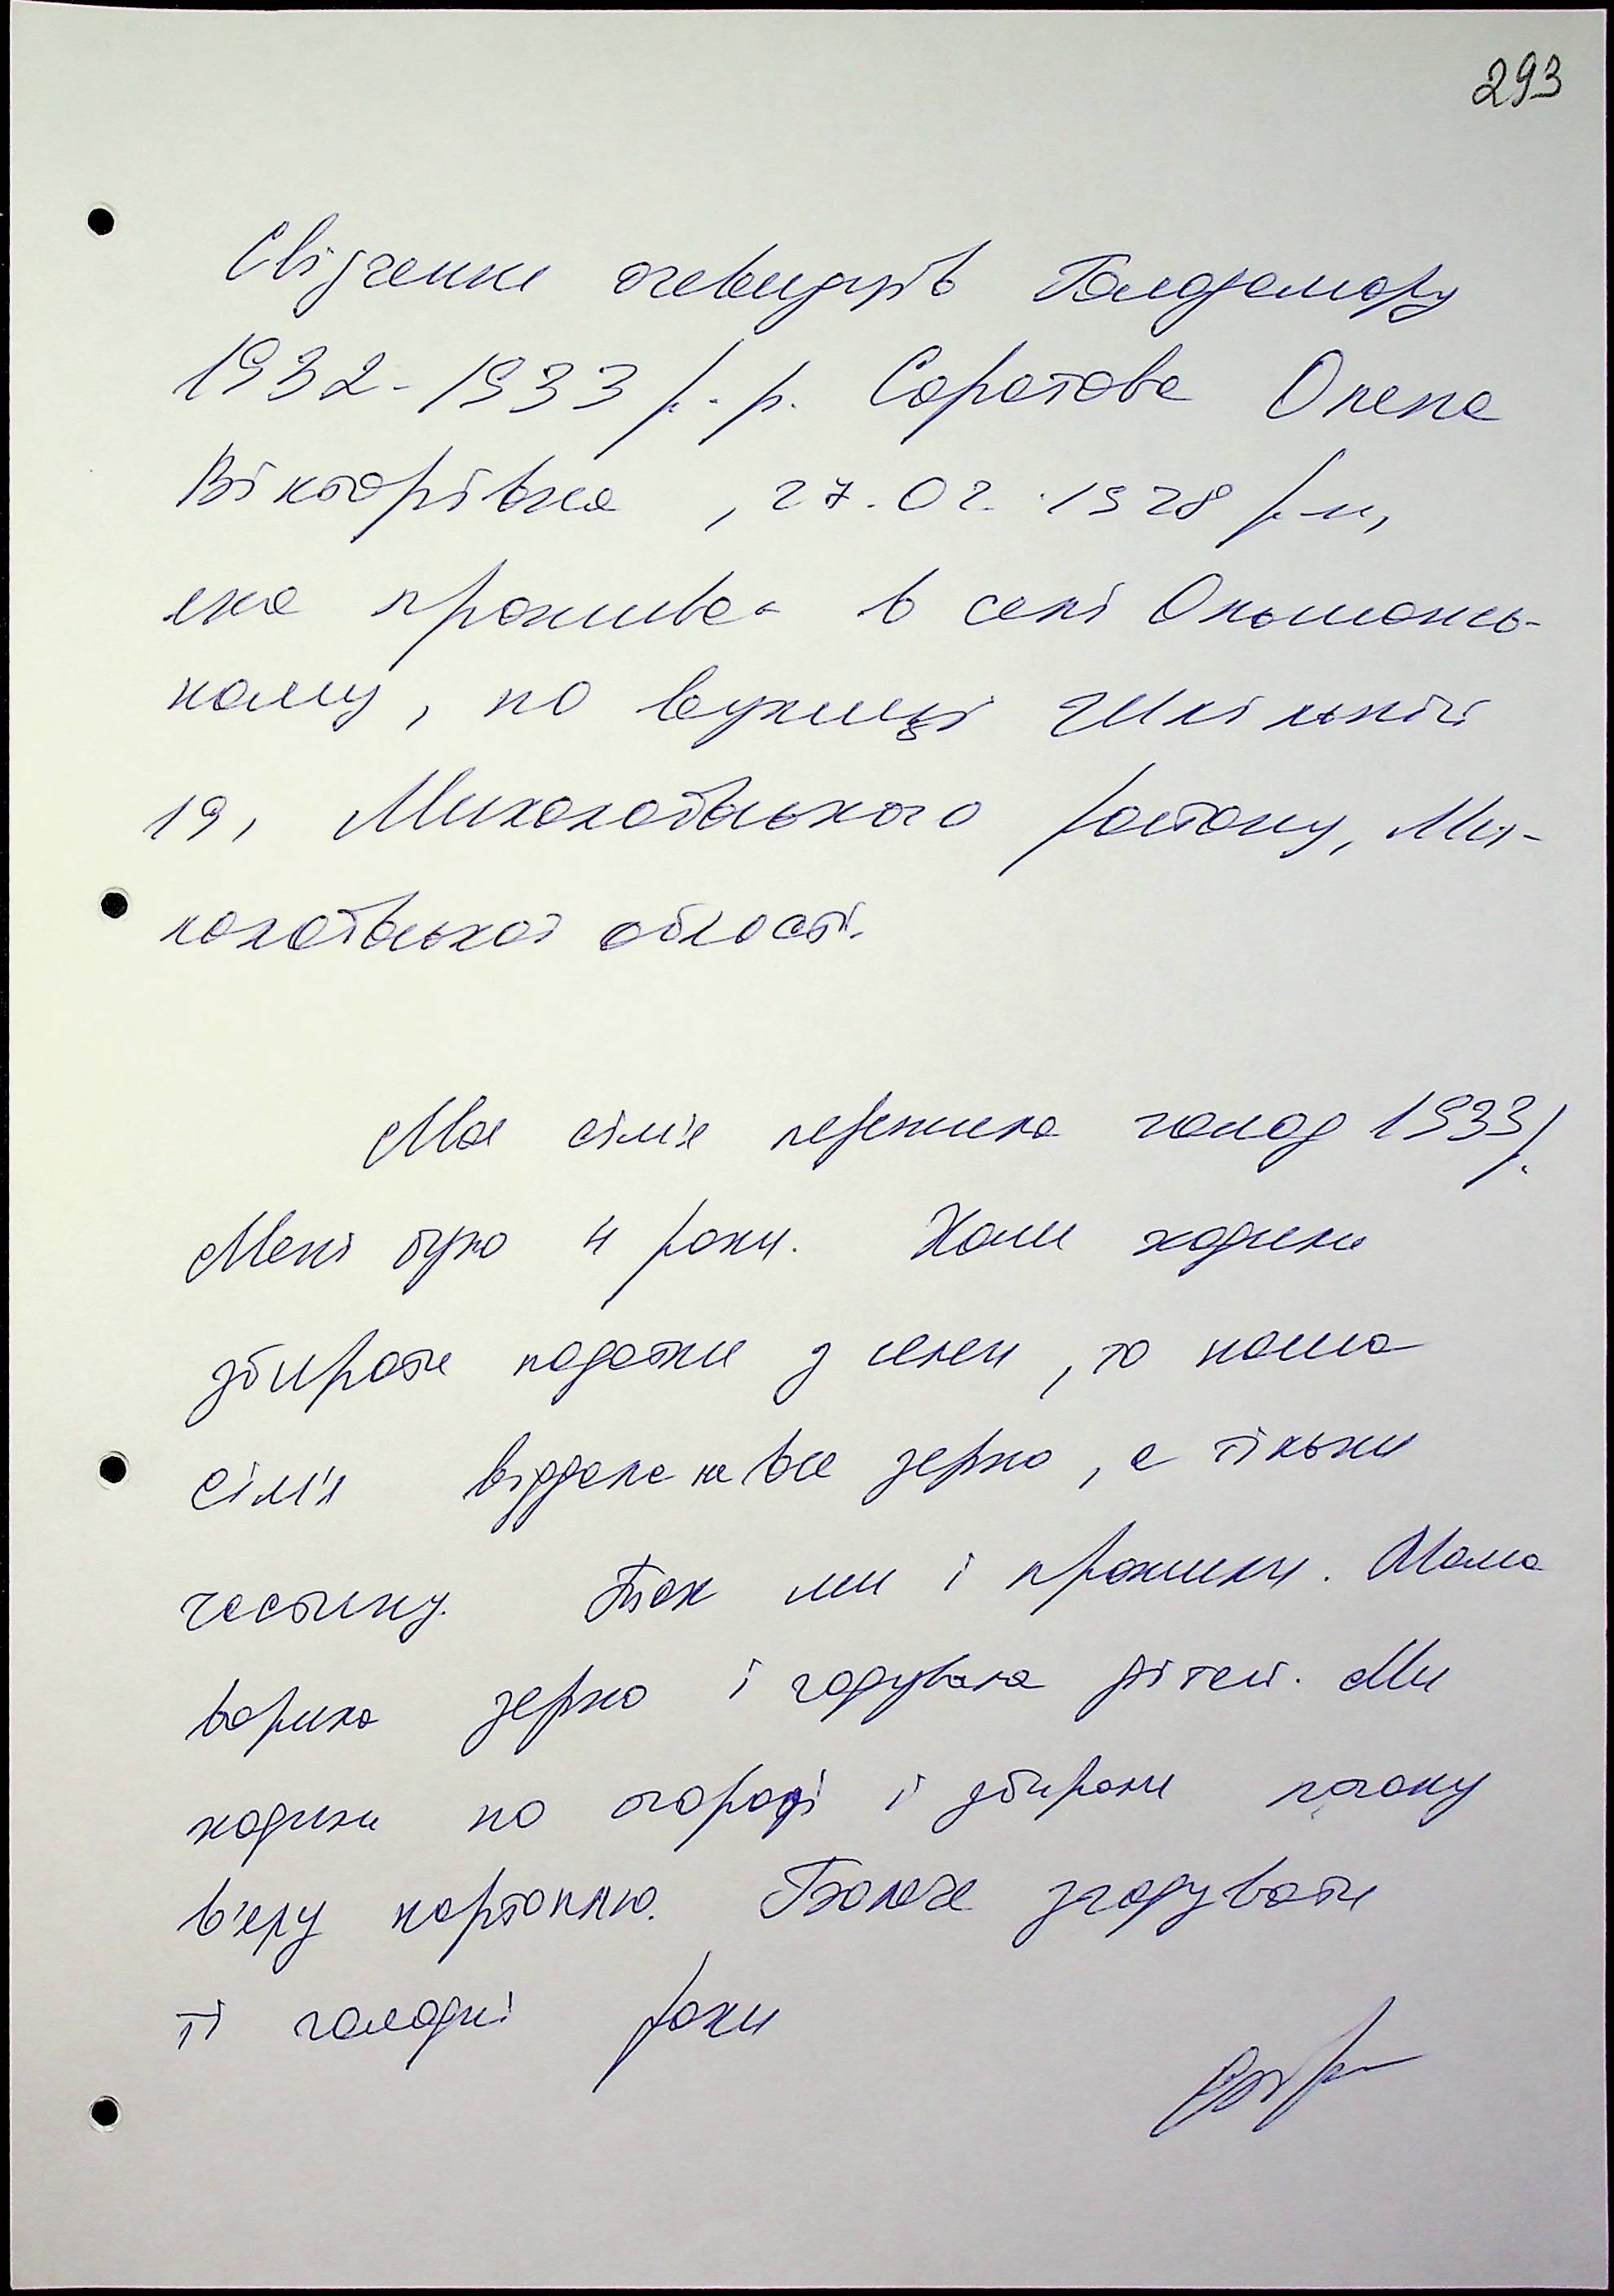 293
Свідчення очевидців Голодомору
1932-1933 р.р. Саратова Олена
Вікторівна, 27.02.1928 р.н,
яка проживає в селі Ольшансь-
кому, по вулиці Шкільній
19, Миколаївського району, Ми-
колаївської області.
Моя сім'я пережила голод 1933 р.
Мені було 4 роки. Коли ходили
збирати податки з селян, то наша
сім'я віддала не все зерно, а тільки
частину. Так ми і прожили. Мама
варила зерно і годувала дітей. Ми
ходили по огороді і збирали
в'ялу картоплю. Боляче згадувати
ті голодні роки